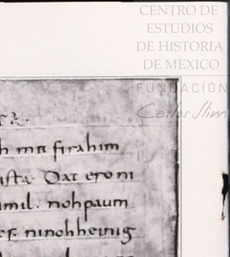 CENTRO DE
ESTUDIOS
DE HISTORIA
DE MEXICO
FUNDACIÓN
Carlos Slim
mit firahim
ista. Dat ero ni
nohpaum
ninohheinig